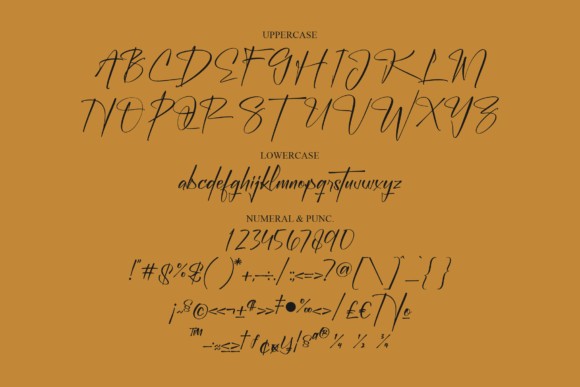 UPPERCASE
ABCDEFGHIJKLM
NOPQRSTUVWXYZ
LOWERCASE
abcdefghijklmnopqrstuvwxyz
NUMERAL & PUNC.
1234567890
!"#$%&( )*+,-÷./:;<=>?@[\]^_{ }
¡~§©«¬±¶»‡●‰<>/£€№
™